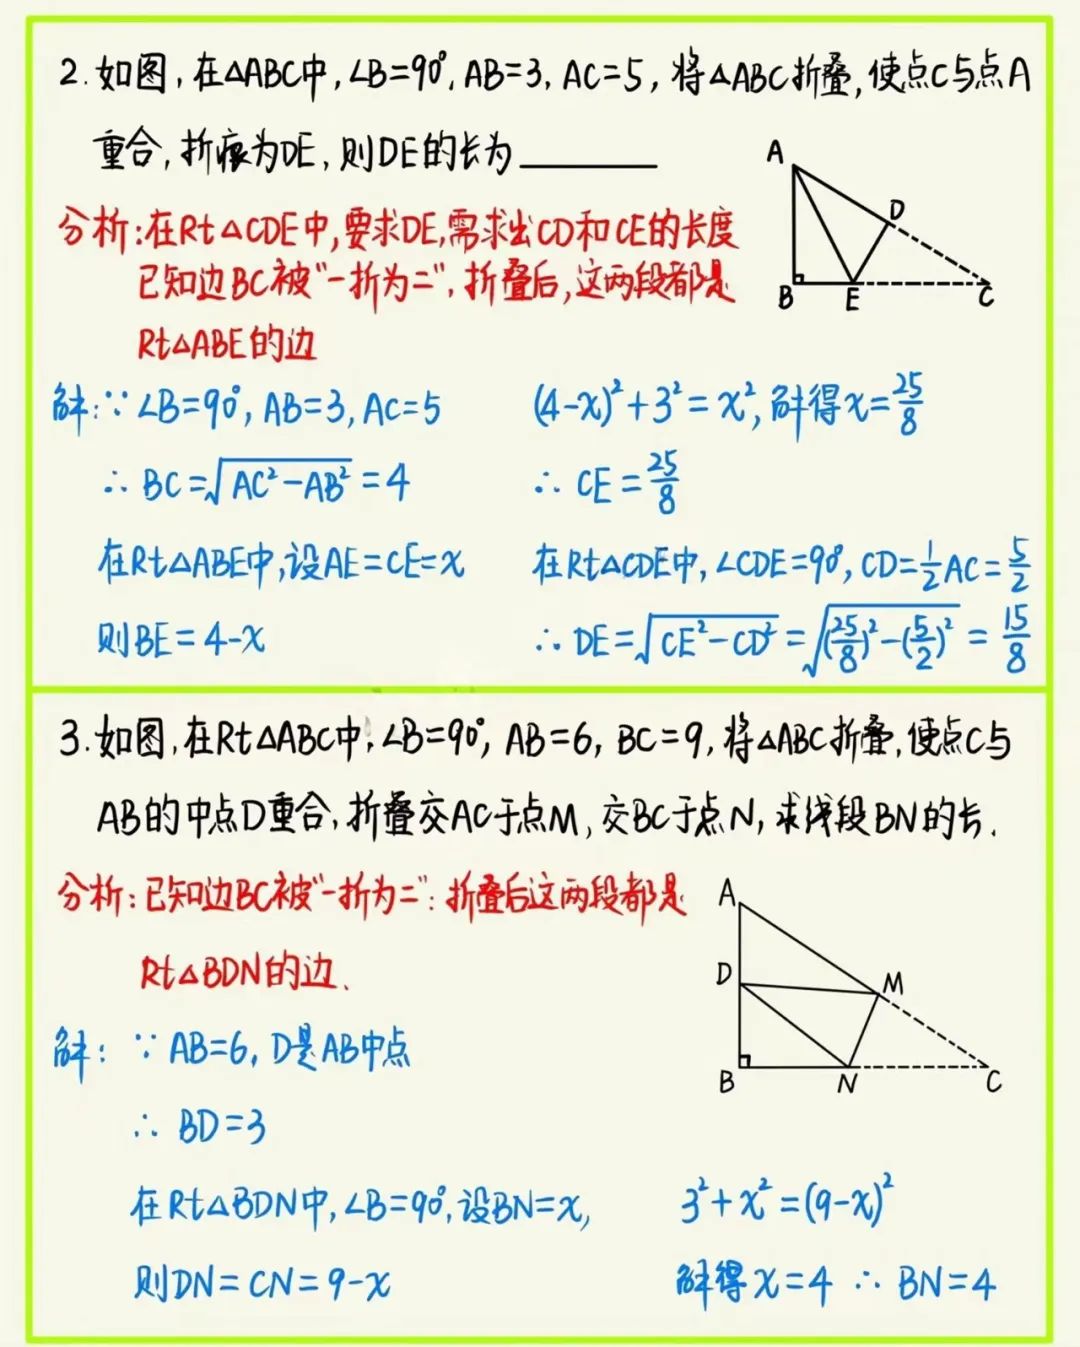 2.如图,在△ABC中,∠B=90°,AB=3,AC=5,将△ABC折叠,使点C与点A
重合,折痕为DE,则DE的长为________
A
D
B
E
C
分析:在Rt△CDE中,要求DE,需求出CD和CE的长度
已知边BC被"一折为二",折叠后,这两段都是
Rt△ABE的边
解:∵∠B=90°,AB=3,AC=5
∴BC=√(AC²-AB²)=4
在Rt△ABE中,设AE=CE=x
则BE=4-x
(4-x)²+3²=x²,解得x=25/8
∴CE=25/8
在Rt△CDE中,∠CDE=90°,CD=1/2AC=5/2
∴DE=√(CE²-CD²)=√((25/8)²-(5/2)²)=15/8
3.如图,在Rt△ABC中,∠B=90°,AB=6,BC=9,将△ABC折叠,使点C与
AB的中点D重合,折叠交AC于点M,交BC于点N,求线段BN的长.
分析:已知边BC被"一折为二":折叠后这两段都是
Rt△BDN的边.
A
D
M
B
N
C
解:∵AB=6,D是AB中点
∴BD=3
在Rt△BDN中,∠B=90°,设BN=x,
则DN=CN=9-x
3²+x²=(9-x)²
解得x=4 ∴BN=4